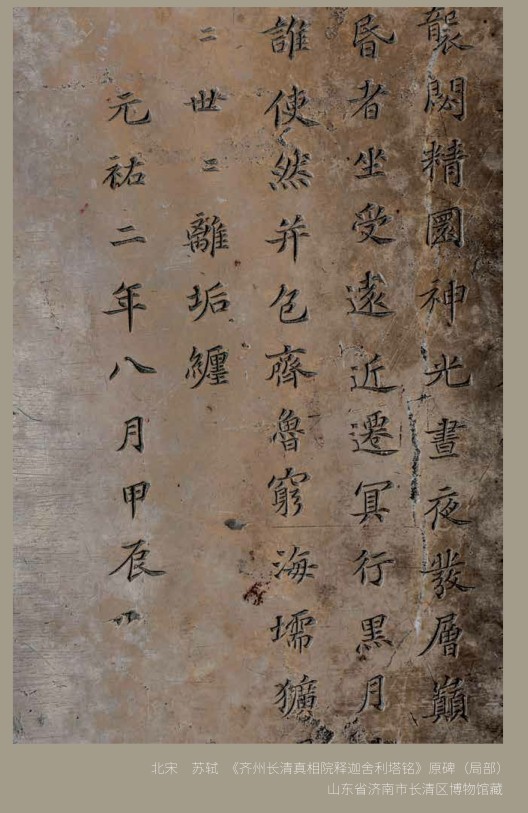 襲閟精圜神光晝夜發層巔
昏者坐受遠近遷冥行黑月
誰使然并包齊魯窮海壖獷
二世二離垢纏
元祐二年八月甲辰
北宋 苏轼 《齐州长清真相院释迦舍利塔铭》原碑（局部）
山东省济南市长清区博物馆藏